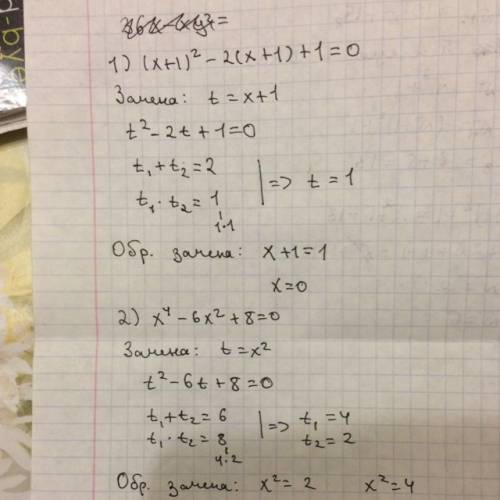 1) (x+1)² - 2(x+1) + 1 = 0
Замена: t = x+1
t² - 2t + 1 = 0
t₁ + t₂ = 2
t₁ · t₂ = 1 | => t = 1
1·1
Обр. замена: x+1 = 1
x = 0
2) x⁴ - 6x² + 8 = 0
Замена: t = x²
t² - 6t + 8 = 0
t₁ + t₂ = 6 | => t₁ = 4
t₁ · t₂ = 8 | t₂ = 2
4·2
Обр. замена: x² = 2 x² = 4